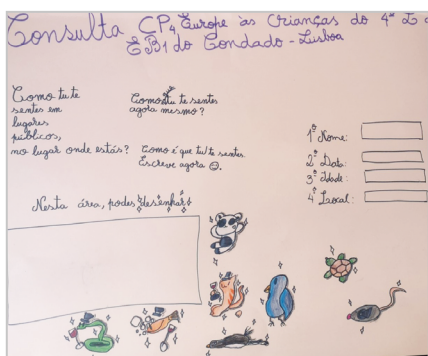 Consulta CP4 Europe às Crianças do 4º L
EB1 do Condado - Lisboa
Como tu te
sentes em
lugares
públicos,
no lugar onde estás?
Como tu te sentes
agora mesmo?
Como é que tu te sentes.
Escreve agora
1º Nome:
2º Data:
3º Idade:
4º Local:
Nesta área, podes desenhar